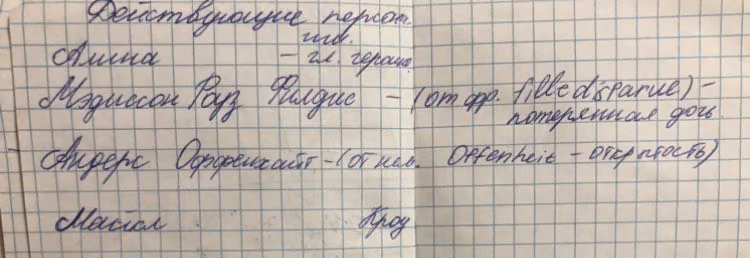 Действующие персонажи.
Алина – гл. героиня
Мэдиссон Рауз Филдис – (от фр. fille disparue) –
потерянная дочь.
Андерс Оффенхайт – (от нем. Offenheit – открытость)
Майкл Кроу